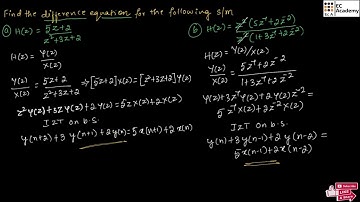 Find the difference equation for the following s/m
(a) H(z) = 5z+2 / z²+3z+2
H(z) = Y(z) / X(z)
Y(z)/X(z) = 5z+2 / z²+3z+2 ⇒ [5z+2]X(z) = [z²+3z+2]Y(z)
z²Y(z)+3zY(z)+2Y(z) = 5zX(z)+2X(z)
IZT on b.s.
y(n+2)+3y(n+1)+2y(n) = 5x(n+1)+2x(n)
(b) H(z) = z²(5z⁻¹+2z⁻²) / z²(1+3z⁻¹+2z⁻²)
H(z) = Y(z)/X(z)
Y(z)/X(z) = 5z⁻¹+2z⁻² / 1+3z⁻¹+2z⁻²
Y(z)+3z⁻¹Y(z)+2Y(z)z⁻² =
5z⁻¹X(z)+2z⁻²X(z)
IZT on b.s.
y(n)+3y(n-1)+2y(n-2) =
5x(n-1)+2x(n-2)
EC Academy
ECA